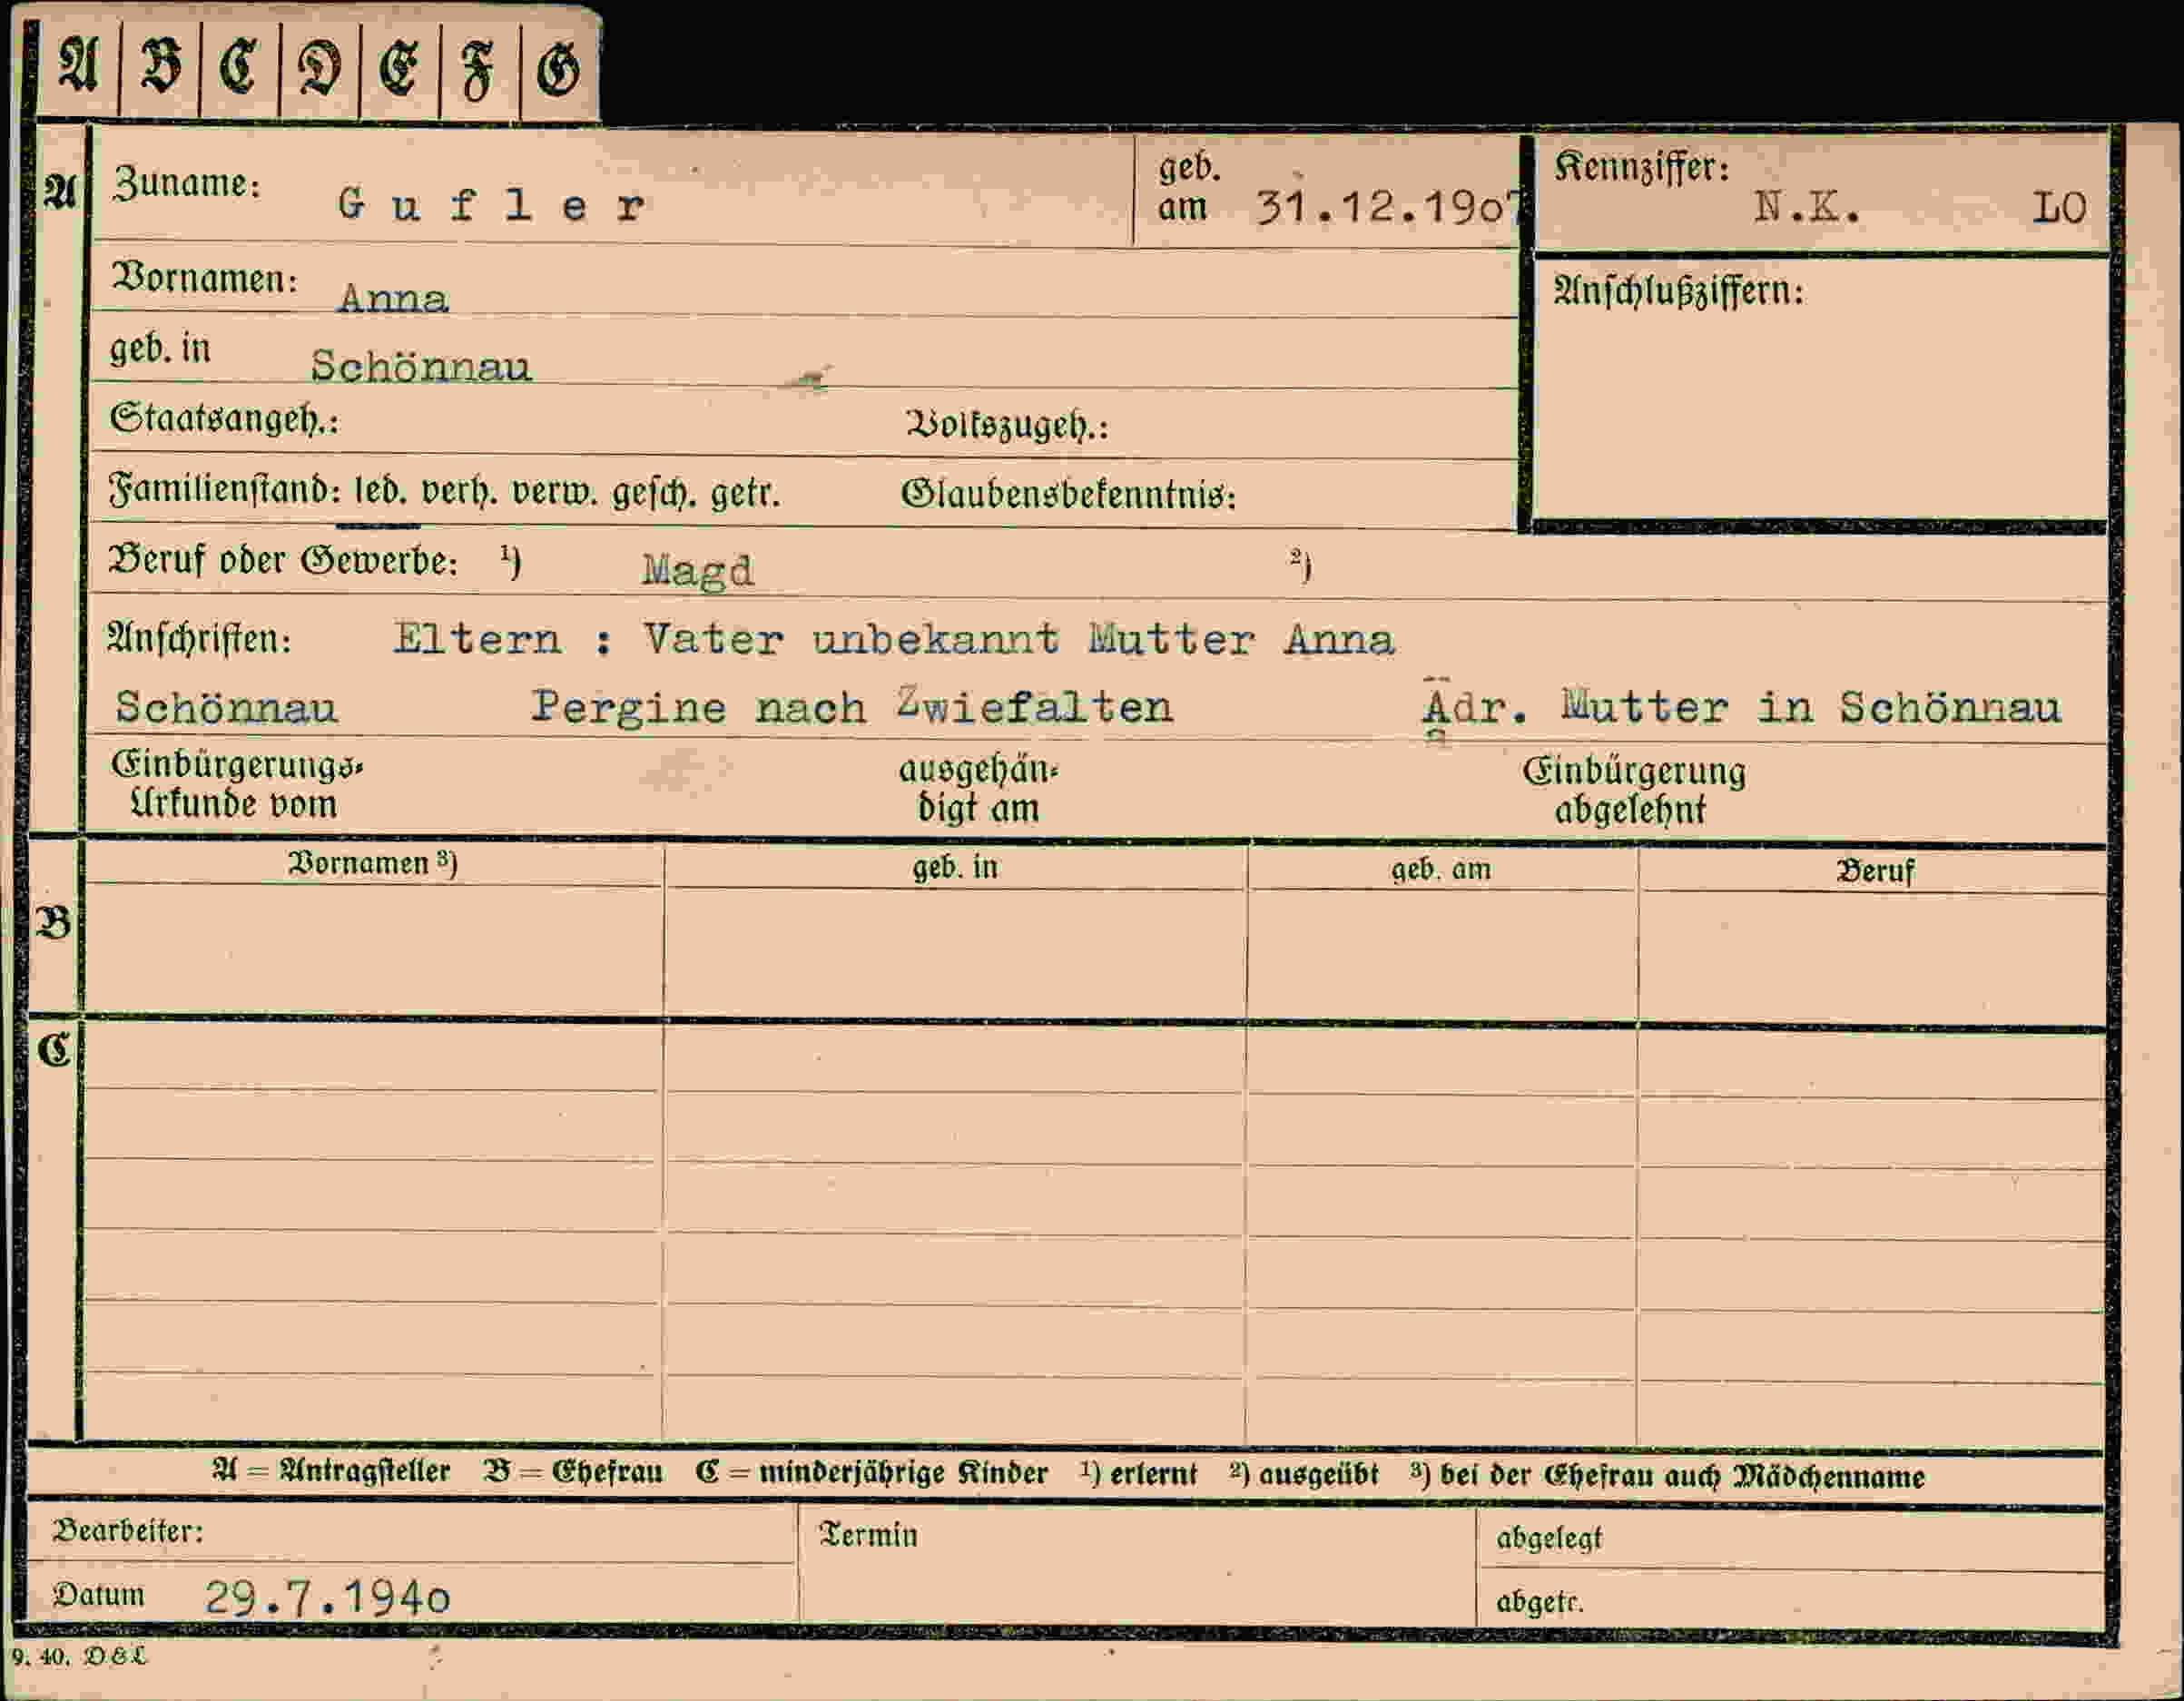 A B C D E F G
A Zuname: Gufler geb. am 31.12.1907 Kennziffer: N.K. LO
Vornamen: Anna Anschlußziffern:
geb. in Schönnau
Staatsangeh.: Volkszugeh.:
Familienstand: led. verh. verw. gesch. getr. Glaubensbekenntnis:
Beruf oder Gewerbe: 1) Magd 2)
Anschriften: Eltern : Vater unbekannt Mutter Anna
Schönnau Pergine nach Zwiefalten Adr. Mutter in Schönnau
Einbürgerungs- ausgehän- Einbürgerung
Urkunde vom digt am abgelehnt
Vornamen 3) geb. in geb. am Beruf
B
C
A = Antragsteller B = Ehefrau C = minderjährige Kinder 1) erlernt 2) ausgeübt 3) bei der Ehefrau auch Mädchenname
Bearbeiter: Termin abgelegt
Datum 29.7.1940 abgetr.
9. 40. D&L